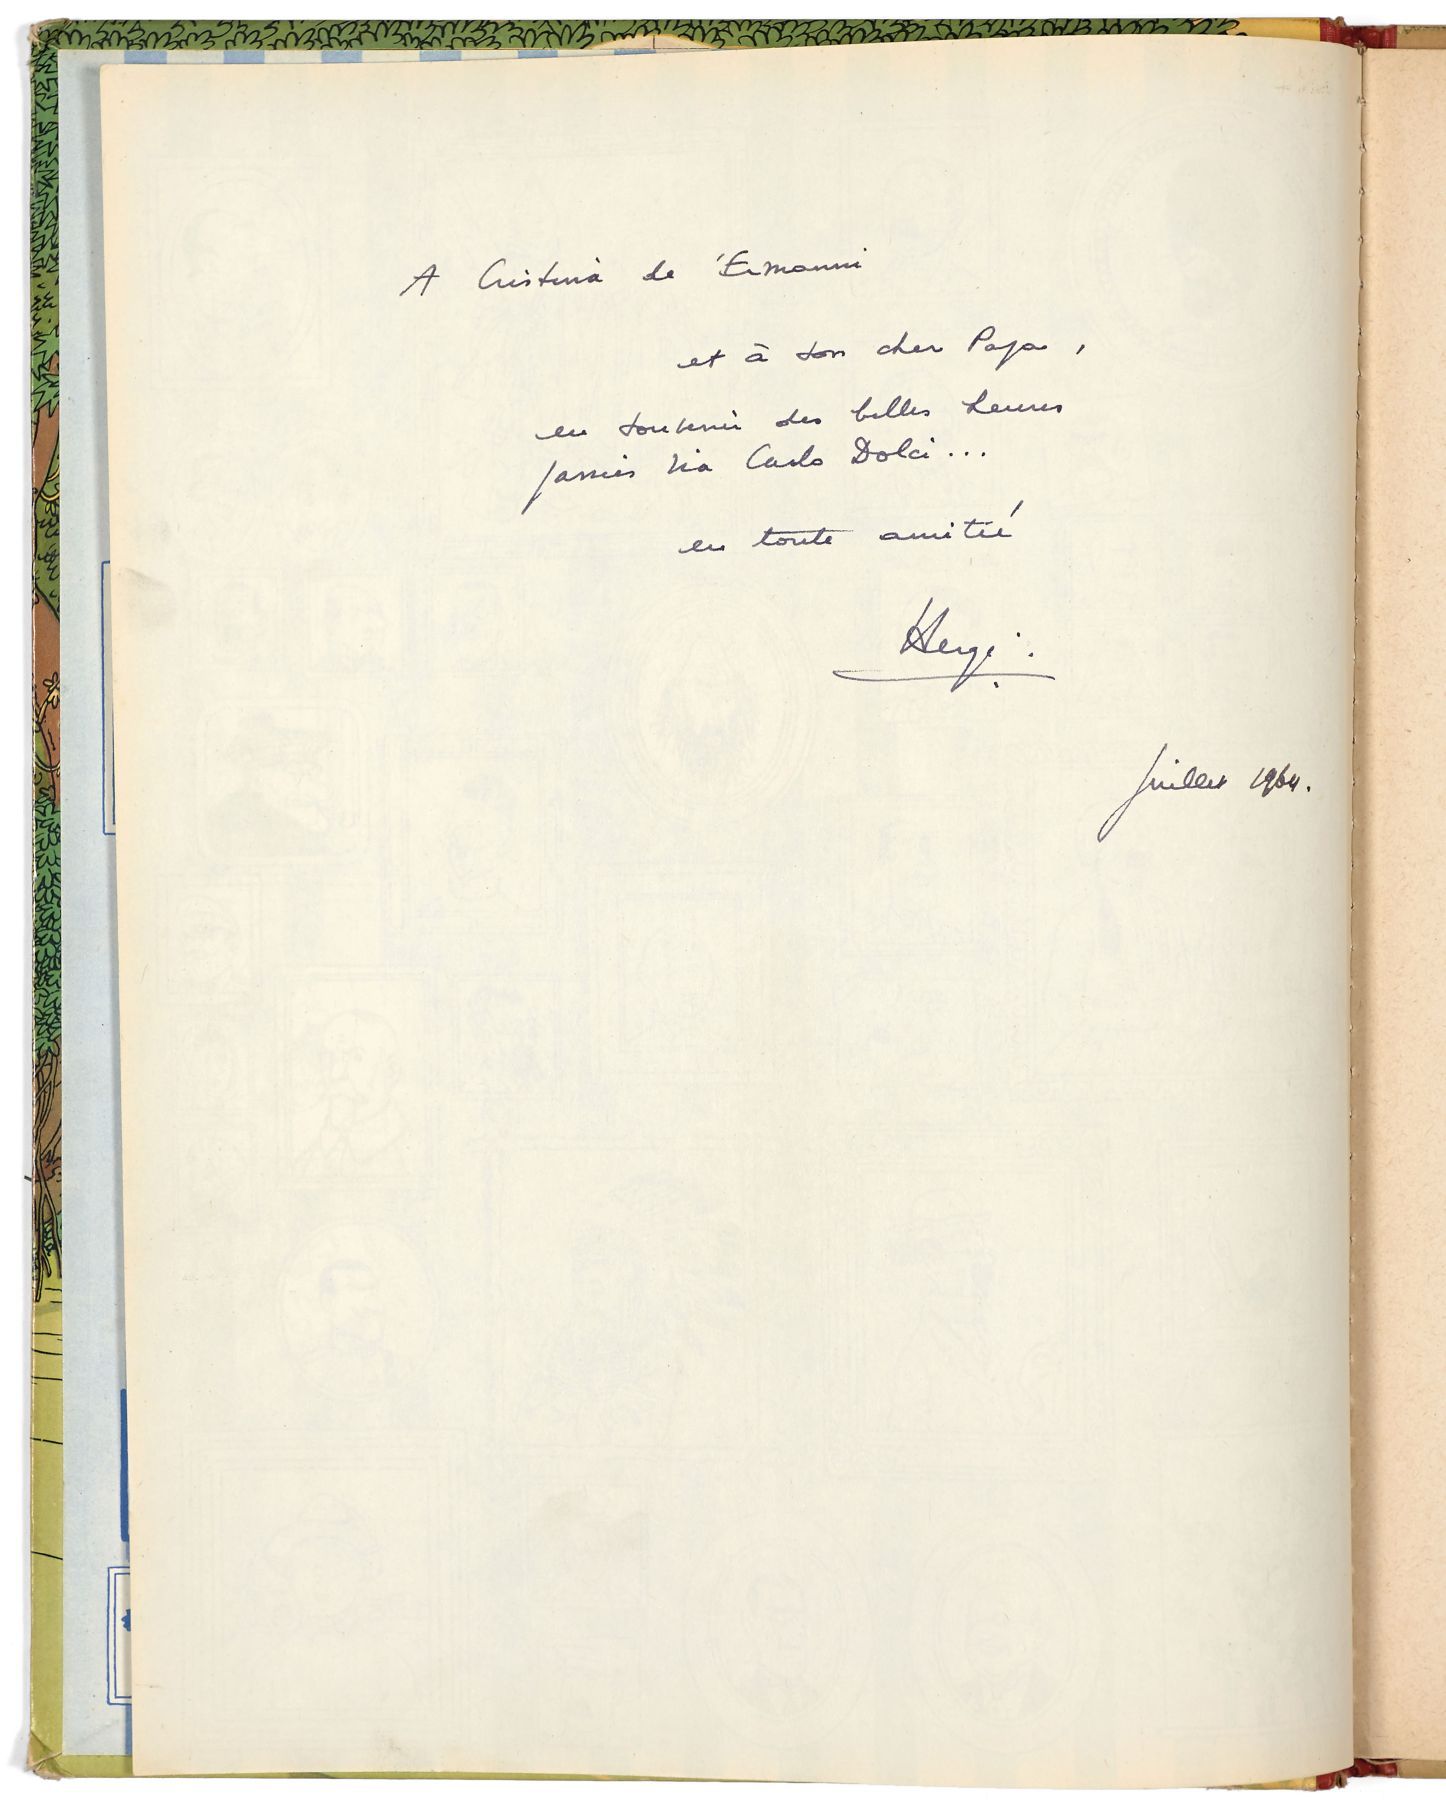 A Cristina de 'Ermanni
et à son cher Papa,
en souvenir des belles heures
passées Via Carlo Dolci...
en toute amitié
Hergé.
Juillet 1964.